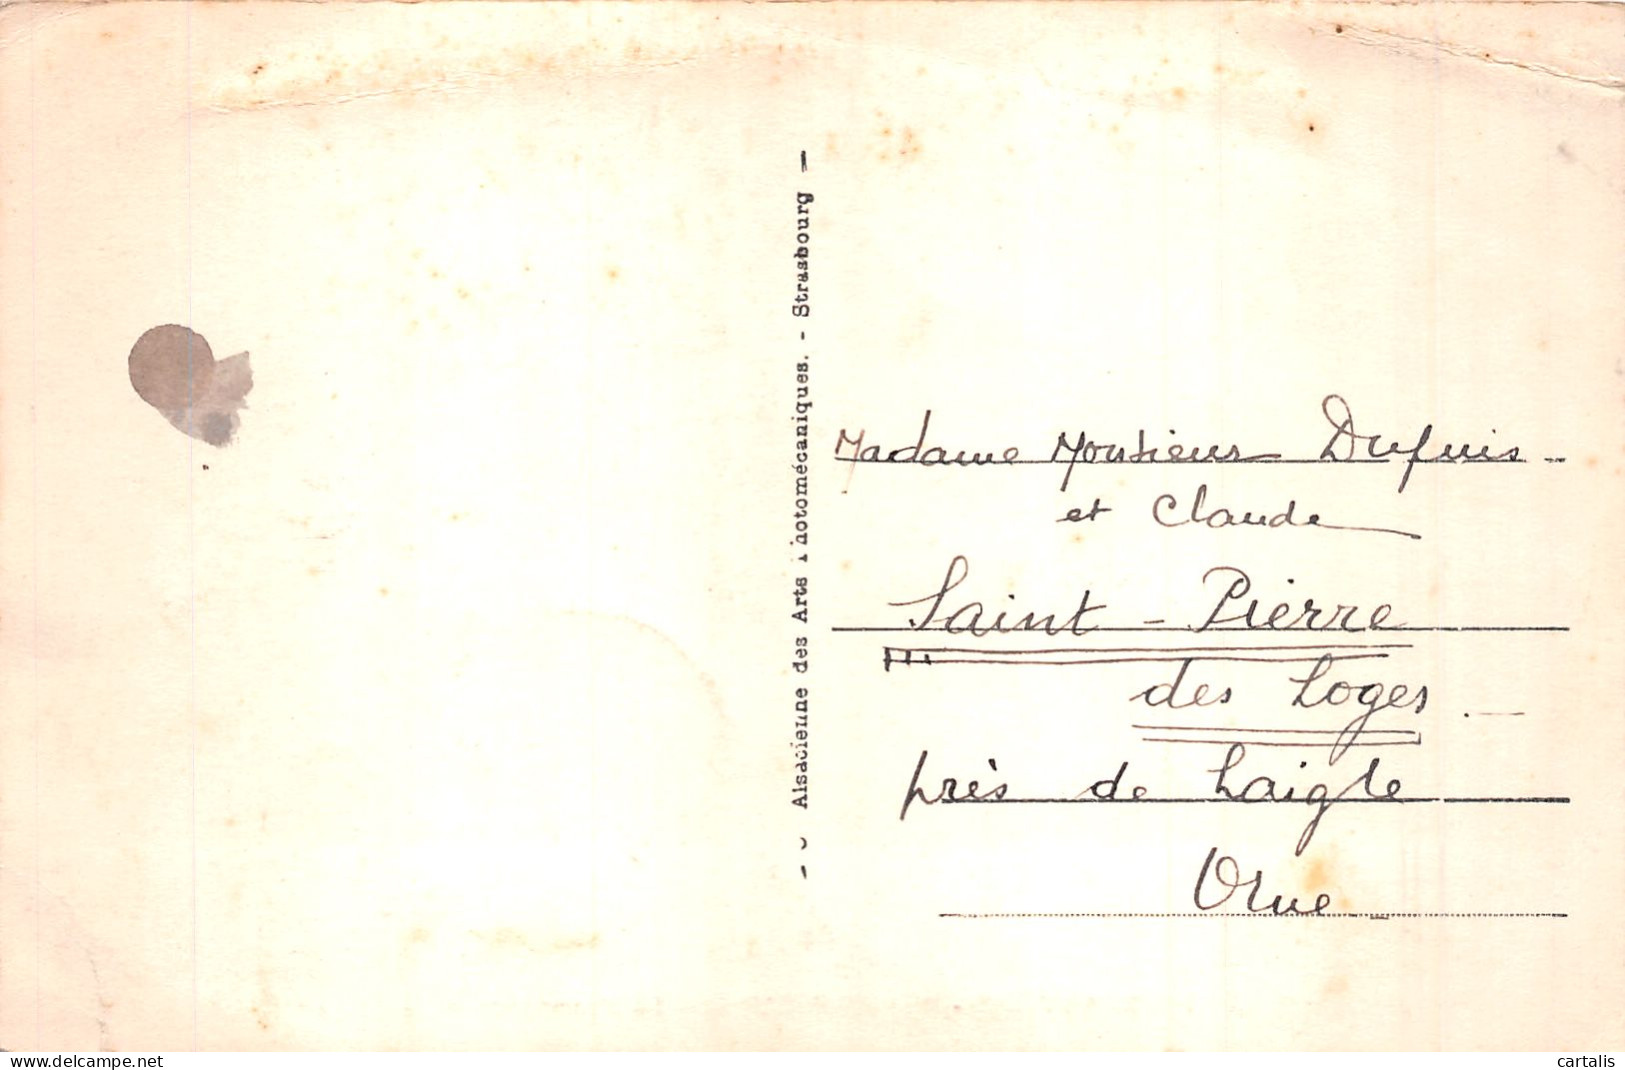 Alsacienne des Arts Photomécaniques. - Strasbourg -
Madame Monsieur Dupuis -
et Claude
Saint - Pierre
des Loges
près de Laigle
Orne
www.delcampe.net
cartalis